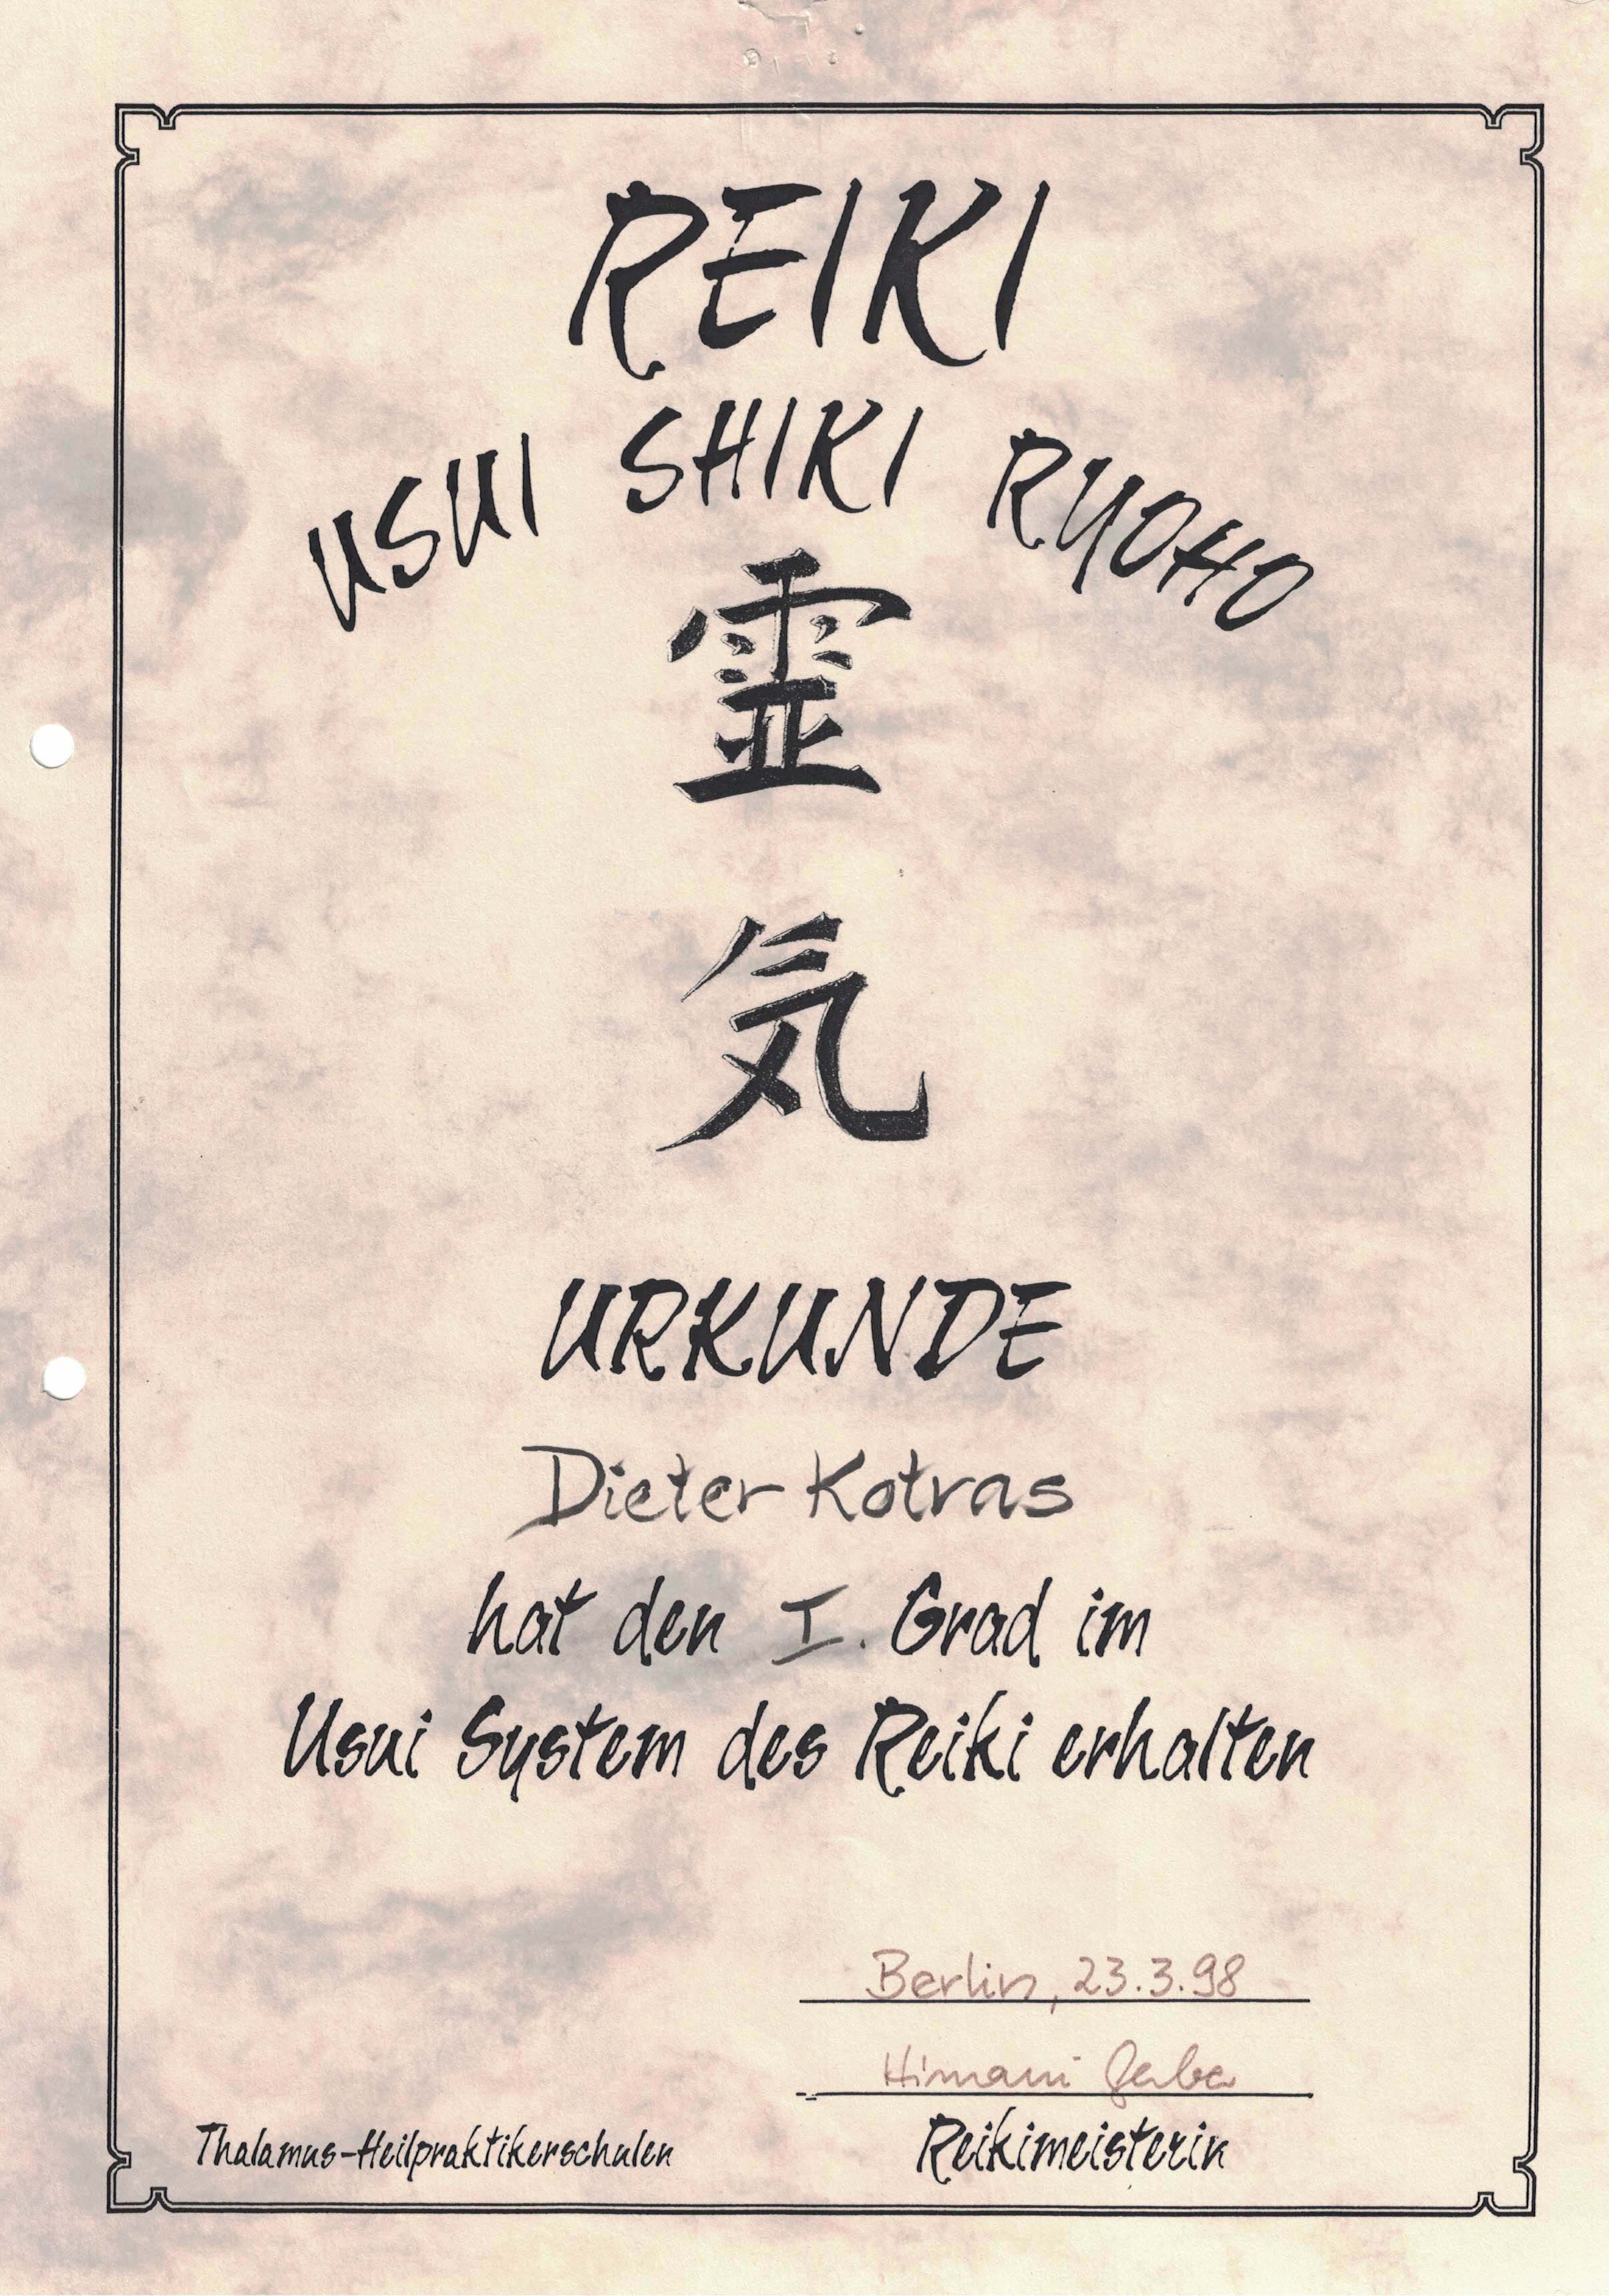 REIKI
USUI SHIKI RYOHO
霊
気
URKUNDE
Dieter Kotras
hat den I. Grad im
Usui System des Reiki erhalten
Berlin, 23.3.98
Himani
Thalamus-Heilpraktikerschulen
Reikimeisterin